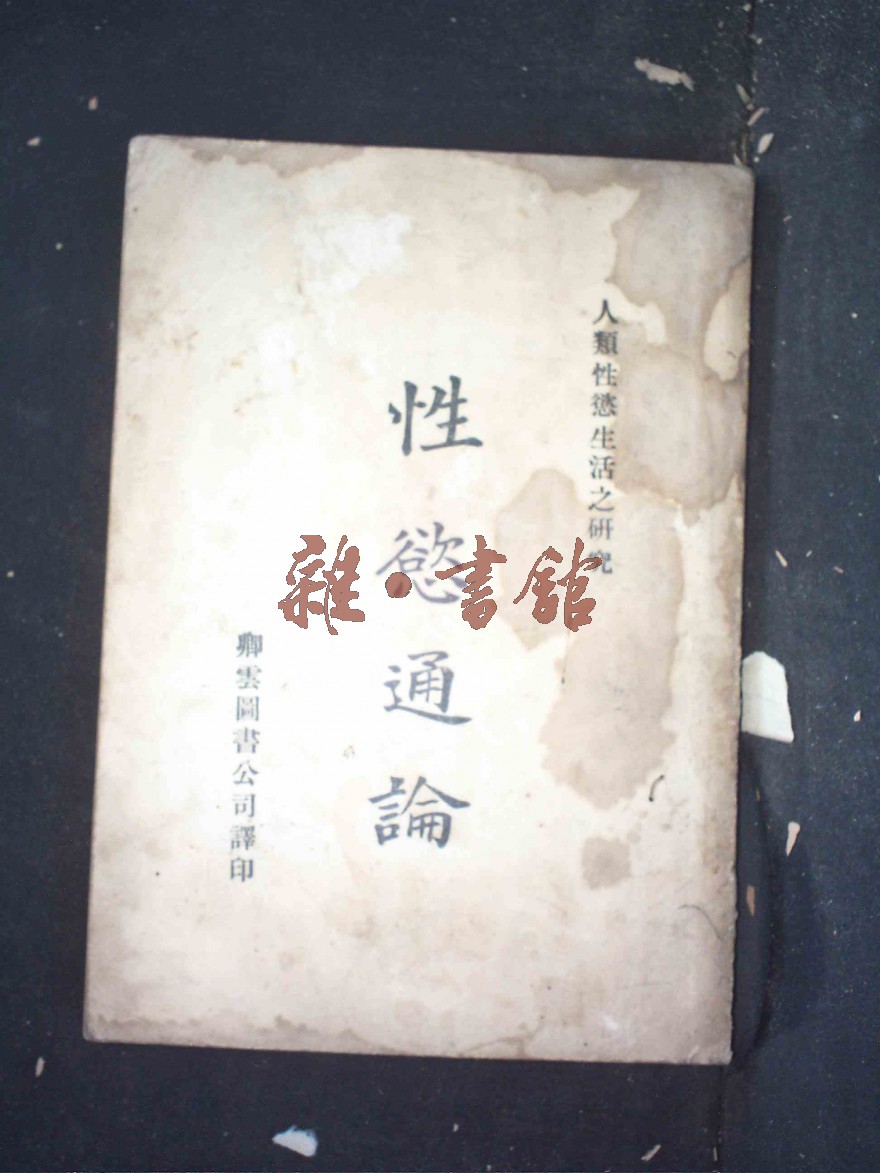 人類性慾生活之研究
性慾通論
卿雲圖書公司譯印
雜·書館